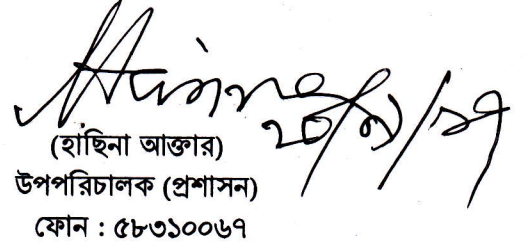 (হাছিনা আক্তার)
উপপরিচালক (প্রশাসন)
ফোন : ৫৮৩১০০৬৭